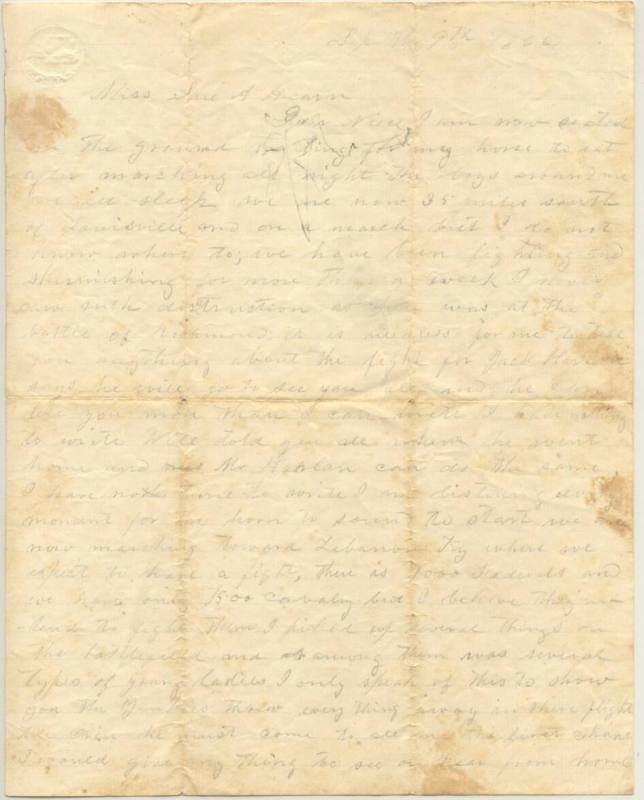 Sep the 9th 1862
Miss Sue A Hearn
Dear Niece I am now seated
on the ground trying for my horse to eat
after marching all night The boys around me
are all sleep we are now 35 miles south
of Louisville and on a march but I do not
know where to, we have been fighting and
skirmishing for more than a week I never
saw such destruction as was at the
battle of Richmond it is useless for me to tell
you anything about the fight for Jack
says he will go to see you all and he can
tell you more than I can write I have nothing
to write Will told you all when he went
home and now Mr Harlan can do the same
I have not time to write I am listening every
momant for the horn to sount to start we are
now marching toward Lebanon Ky where we
expect to have a fight, there is 7000 Federals and
we have only 1500 cavalry but I believe they in
-tend to fight them I picked up several things on
the battlefield and as among them was several
types of young ladies I only speak of this to show
you the Yankies throw every thing away in there flight
tell he must come to see me the first chance
I would give any thing to see or hear from home